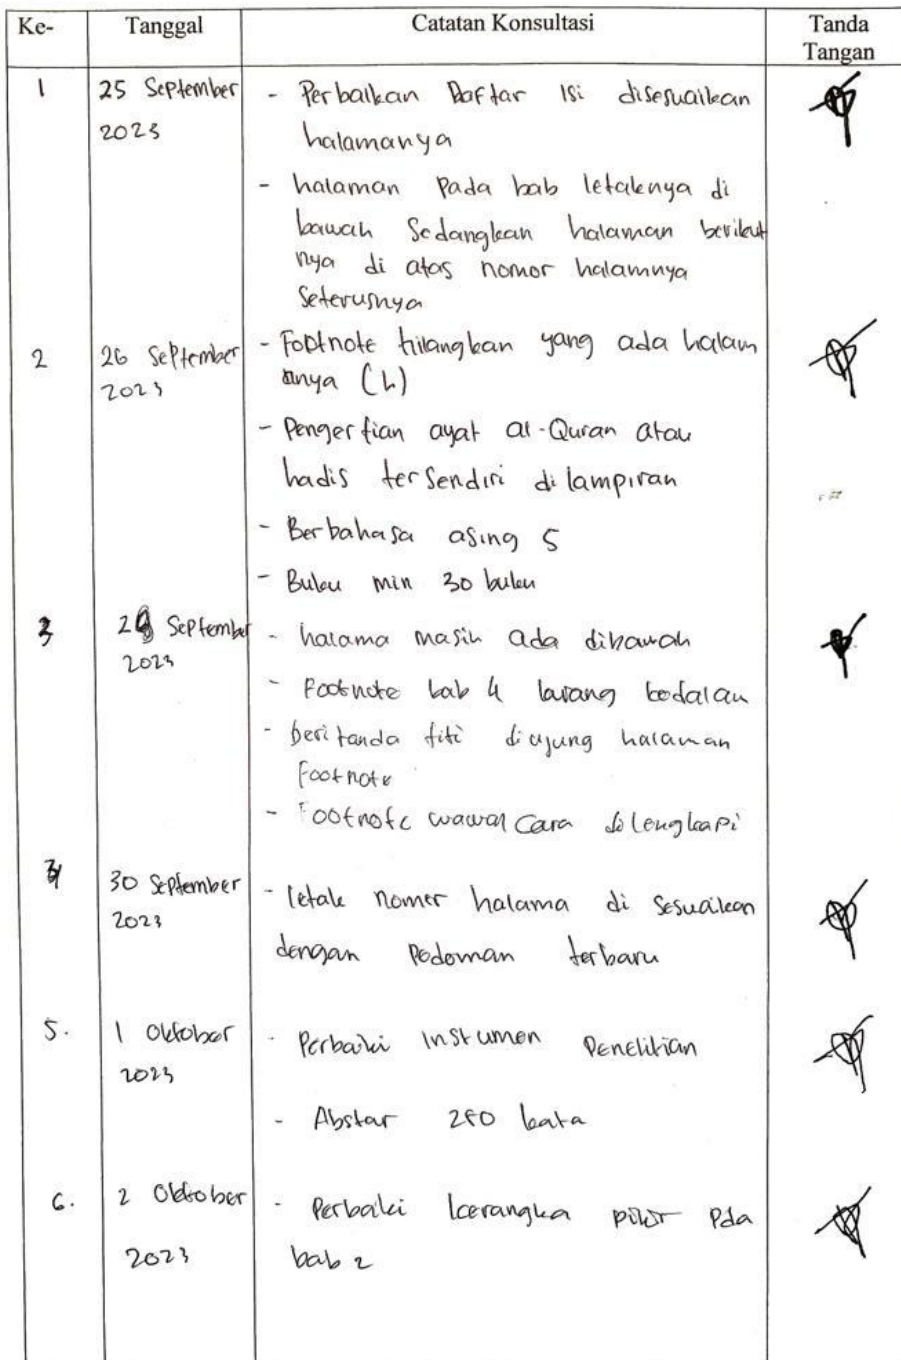 Ke- Tanggal Catatan Konsultasi Tanda
Tangan
1 25 September - Perbaikan Daftar Isi disesuaikan
2023 halamanya
- halaman Pada bab letaknya di
bawah Sedangkan halaman berikut
nya di atas nomor halamnya
Seterusnya
2 26 September - Footnote hilangkan yang ada halam
2023 anya (h)
- Pengertian ayat al-Quran atau
hadis tersendiri di lampiran
- Berbahasa asing 5
- Buku min 30 buku
3 September - halama masih ada dibawah
2023
- Footnote bab 4 kurang
- beri tanda titi diujung halaman
Footnote
- Footnote wawancara dilengkapi
4 30 September - letak nomer halama di sesuaikan
2023 dengan Pedoman terbaru
5. 1 Oktober - Perbaiki Instumen Penelitian
2023
- Abstar 250 kata
6. 2 Oktober - Perbaiki kerangka pikir Pda
2023 bab 2